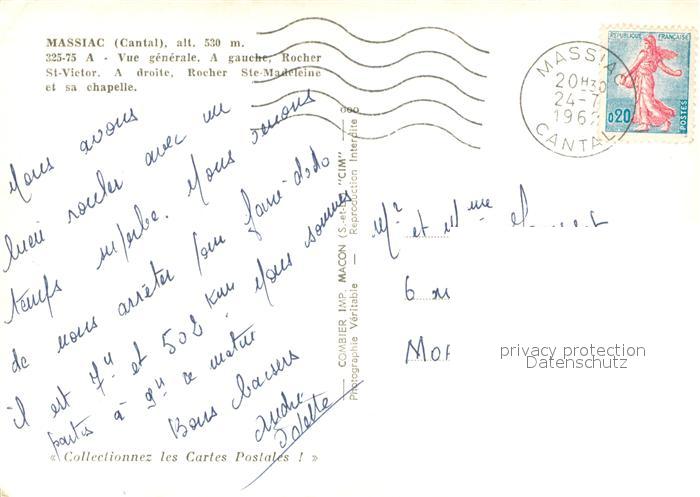 MASSIAC (Cantal), alt. 530 m.
325-75 A - Vue générale. A gauche, Rocher
St-Victor. A droite, Rocher Ste-Madeleine
et sa chapelle.
MASSIAC
20H30
24-7
1962
CANTAL
REPUBLIQUE FRANÇAISE
0,20
POSTES
Nous avons
bien rouler avec un
temps superbe. Nous venons
de nous arrêter pour faire dodo
il est 7H et 502 km Nous sommes
partis à 9H ce matin
Bons baisers
André
Odette
COMBIER IMP. MACON (S.-et-L.) "CIM"
Photographie Véritable — Reproduction Interdite
Mr et Mme
6
privacy protection
Datenschutz
« Collectionnez les Cartes Postales ! »